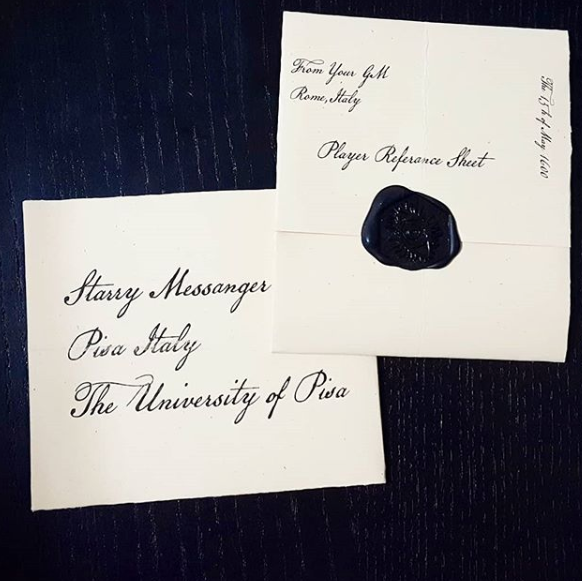 From Your GM
Rome, Italy
The 15th of May 1600
Player Referance Sheet
Starry Messanger
Pisa Italy
The University of Pisa